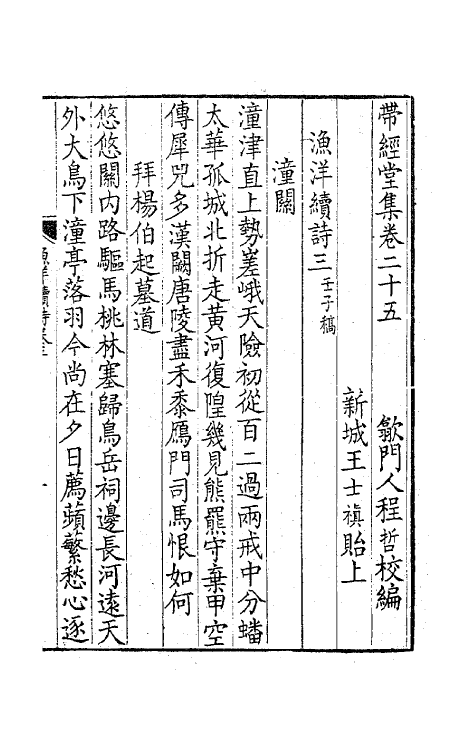 帶經堂集卷二十五
歙門人程哲校編
新城王士禛貽上
漁洋續詩三壬子稿
潼關
潼津直上勢嵳峨天險初從百二過兩戒中分蟠
太華孤城北折走黃河復隍幾見熊羆守棄甲空
傳犀兕多漢闕唐陵盡禾黍鴈門司馬恨如何
拜楊伯起墓道
悠悠關內路驅馬桃林塞歸鳥岳祠邊長河遠天
外大鳥下潼亭落羽今尚在夕日薦蘋蘩愁心逐
漁洋續詩卷三
一